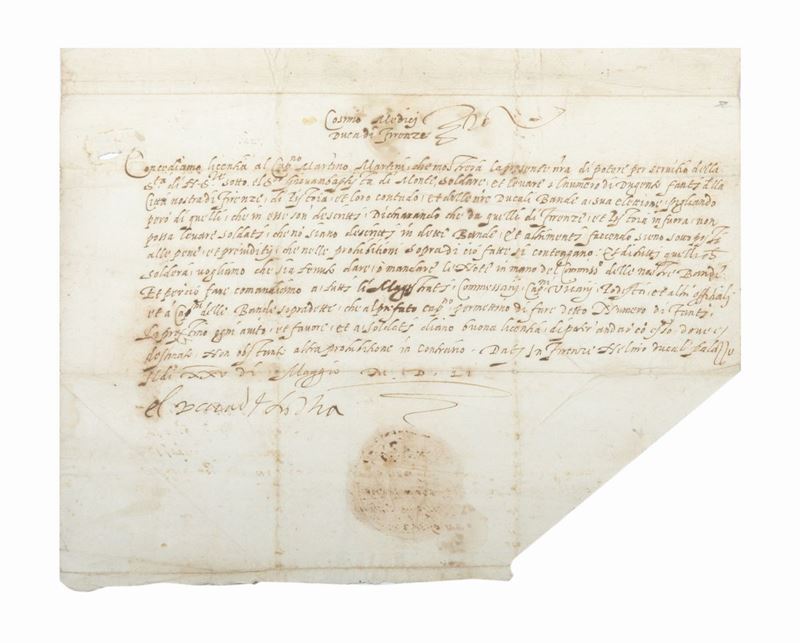 Cosmo Medici
Duca di Firenze
Concediamo licentia al Cap.no Martino Martini, che mostrera la presente nra di potere per servitio della
S.ta di N. S. sotto il S.r Giovambapt.a di Monte, soldare, et levare il numero di Dugento fanti della
Citta nostra di Firenze, di Pistoia, et loro contado, et delle nre Ducali Bande a sua elettione, pigliando
pero di quelli, che in esse son descritti Dichiarando che da quelle di Firenze, et Pistoia in fuora, non
possa levare soldati, che nō siano descritti in dette Bande, Et altrimenti facendo sieno sottoposti
alle pene, et preiuditij, che nelle prohibitioni sopra di ciò fatte si contengano: Et di tutti quelli ch
soldera, vogliamo che sia tenuto dare, o mandare le Note in mano del Commiss.o delle nostre Bande.
Et perciò fare comandiamo a tutti li Commissarij, Cap.ni Vicarij, Podestà, et altri offitiali
et a Cap.ni delle Bande sopradette, che al p.fato cap.no permettino di fare detto Numero di fanti,
prestino ogni aiuto, et favore, et a soldati diano buona licentia di poter andare con esso dove
desidera. Non obstante altra prohibitione in contrario. Dat. In Firenze Nel nro ducal palazzo
Il di XXV di Maggio M. D. LI
el